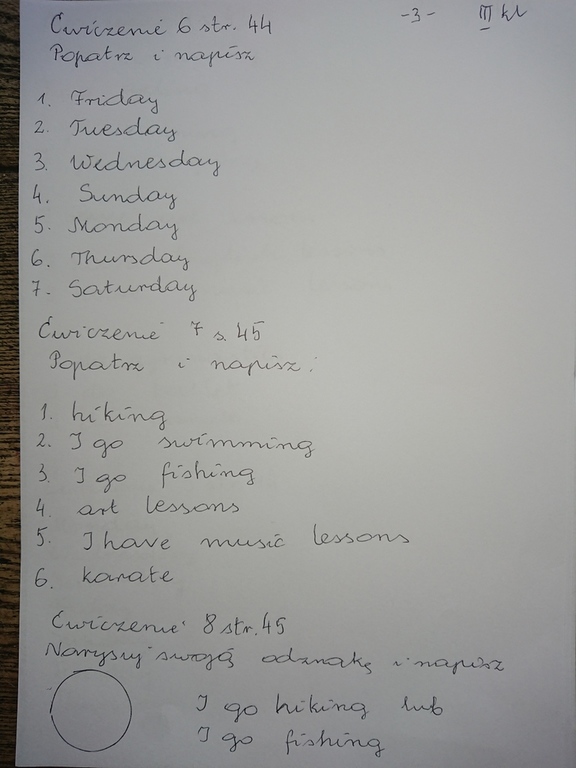 Ćwiczenie 6 str. 44 -3- III kl
Popatrz i napisz
1. Friday
2. Tuesday
3. Wednesday
4. Sunday
5. Monday
6. Thursday
7. Saturday
Ćwiczenie 7 s. 45
Popatrz i napisz.
1. hiking
2. I go swimming
3. I go fishing
4. art lessons
5. I have music lessons
6. karate
Ćwiczenie 8 str. 45
Narysuj swoją odznakę i napisz
I go hiking lub
I go fishing